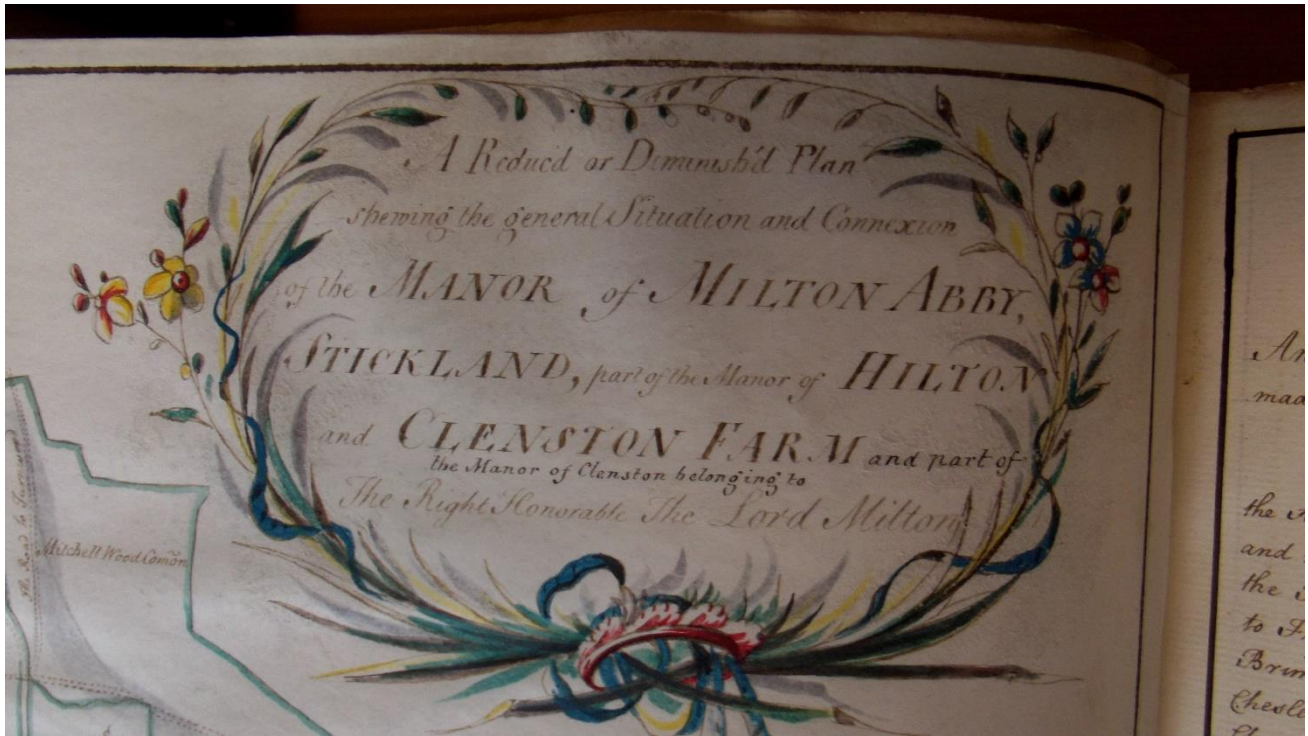 A Reduc'd or Diminish'd Plan
shewing the general Situation and Connexion
of the MANOR of MILTON ABBY,
STICKLAND, part of the Manor of HILTON
and CLENSTON FARM and part of
the Manor of Clenston belonging to
The Right Honorable The Lord Milton
The Road to
Mitchell Wood Comon
made
the
and
the
to